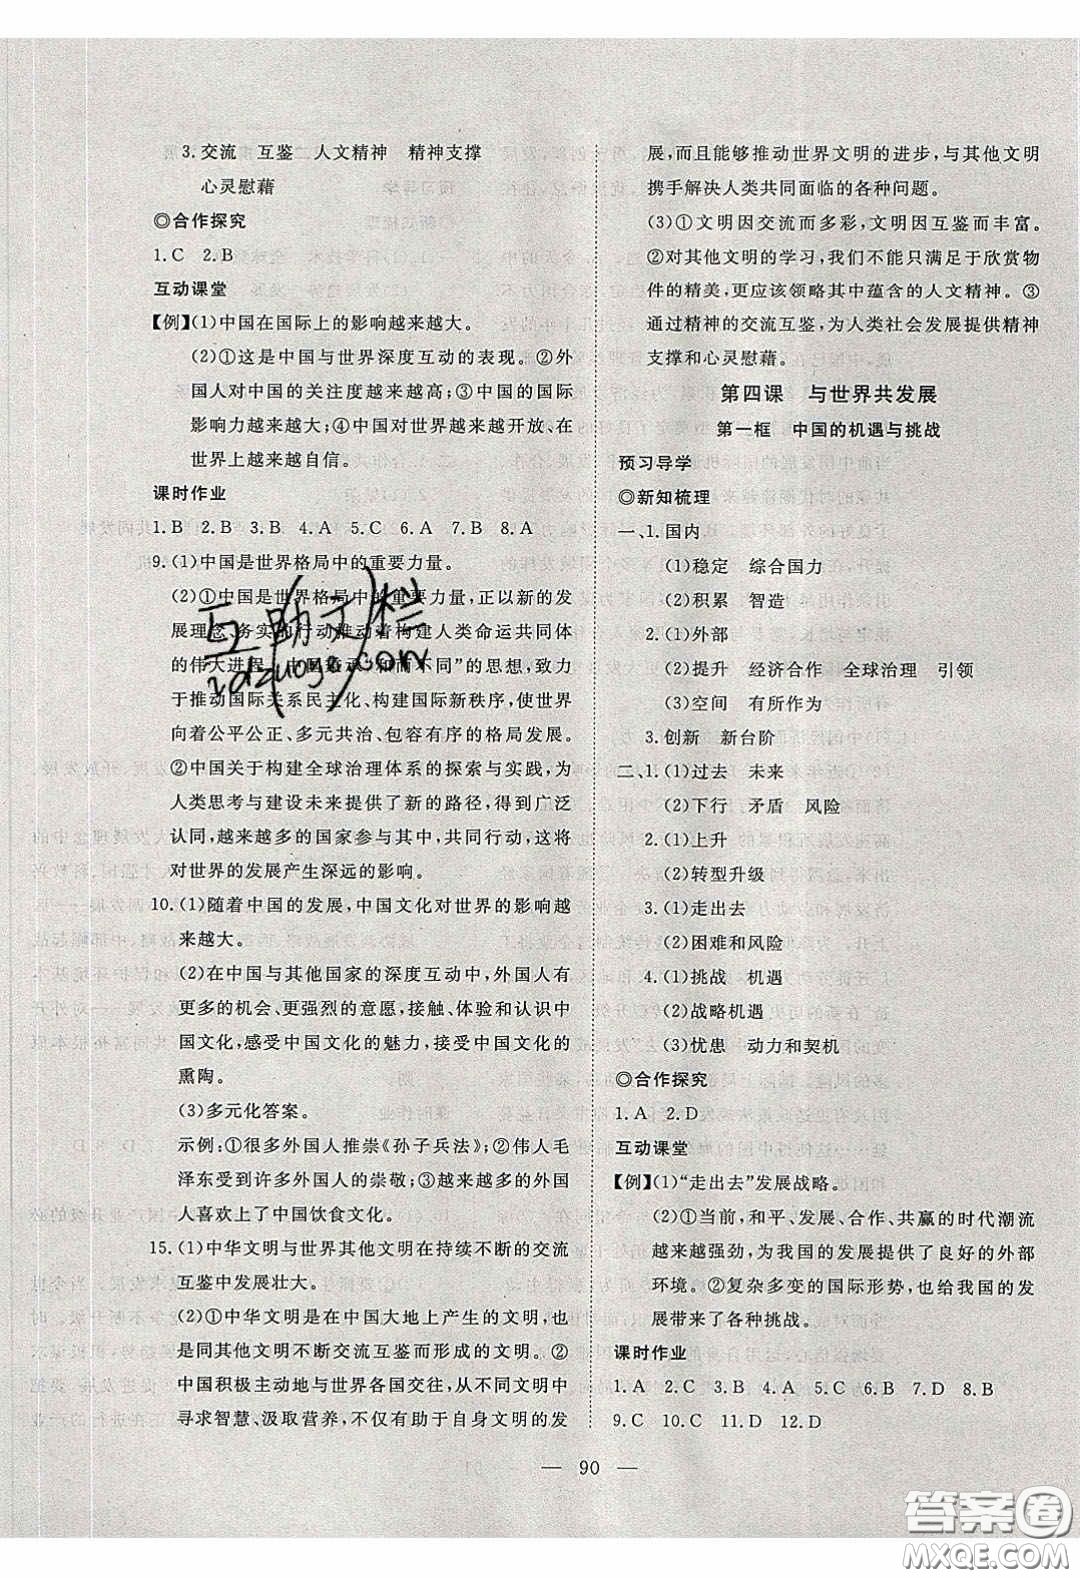 3. 交流　互鉴　人文精神　精神支撑
心灵慰藉
◎合作探究
1. C　2. B
互动课堂
【例】(1)中国在国际上的影响越来越大。
(2)①这是中国与世界深度互动的表现。②外
国人对中国的关注度越来越高;③中国的国际
影响力越来越大;④中国对世界越来越开放、在
世界上越来越自信。
课时作业
1. B　2. B　3. B　4. A　5. C　6. A　7. B　8. A
9. (1)中国是世界格局中的重要力量。
(2)①中国是世界格局中的重要力量,正以新的发
展理念、务实的行动推动着构建人类命运共同体
的伟大进程。中国秉承“和而不同”的思想,致力
于推动国际关系民主化、构建国际新秩序,使世界
向着公平公正、多元共治、包容有序的格局发展。
②中国关于构建全球治理体系的探索与实践,为
人类思考与建设未来提供了新的路径,得到广泛
认同,越来越多的国家参与其中,共同行动,这将
对世界的发展产生深远的影响。
10. (1)随着中国的发展,中国文化对世界的影响越
来越大。
(2)在中国与其他国家的深度互动中,外国人有
更多的机会、更强烈的意愿,接触、体验和认识中
国文化,感受中国文化的魅力,接受中国文化的
熏陶。
(3)多元化答案。
示例:①很多外国人推崇《孙子兵法》;②伟人毛
泽东受到许多外国人的崇敬;③越来越多的外国
人喜欢上了中国饮食文化。
15. (1)中华文明与世界其他文明在持续不断的交流
互鉴中发展壮大。
(2)①中华文明是在中国大地上产生的文明,也
是同其他文明不断交流互鉴而形成的文明。②
中国积极主动地与世界各国交往,从不同文明中
寻求智慧、汲取营养,不仅有助于自身文明的发
展,而且能够推动世界文明的进步,与其他文明
携手解决人类共同面临的各种问题。
(3)①文明因交流而多彩,文明因互鉴而丰富。
②对其他文明的学习,我们不能只满足于欣赏物
件的精美,更应该领略其中蕴含的人文精神。③
通过精神的交流互鉴,为人类社会发展提供精神
支撑和心灵慰藉。
第四课　与世界共发展
第一框　中国的机遇与挑战
预习导学
◎新知梳理
一、1. 国内
(1)稳定　综合国力
(2)积累　智造
2. (1)外部
(2)提升　经济合作　全球治理　引领
(3)空间　有所作为
3. 创新　新台阶
二、1. (1)过去　未来
(2)下行　矛盾　风险
2. (1)上升
(2)转型升级
3. (1)走出去
(2)困难和风险
4. (1)挑战　机遇
(2)战略机遇
(3)忧患　动力和契机
◎合作探究
1. A　2. D
互动课堂
【例】(1)“走出去”发展战略。
(2)①当前,和平、发展、合作、共赢的时代潮流
越来越强劲,为我国的发展提供了良好的外部
环境。②复杂多变的国际形势,也给我国的发
展带来了各种挑战。
课时作业
1. A　2. C　3. B　4. A　5. C　6. B　7. D　8. B
9. C　10. C　11. D　12. D
— 90 —
互助文栏
答案圈
MXQE.COM